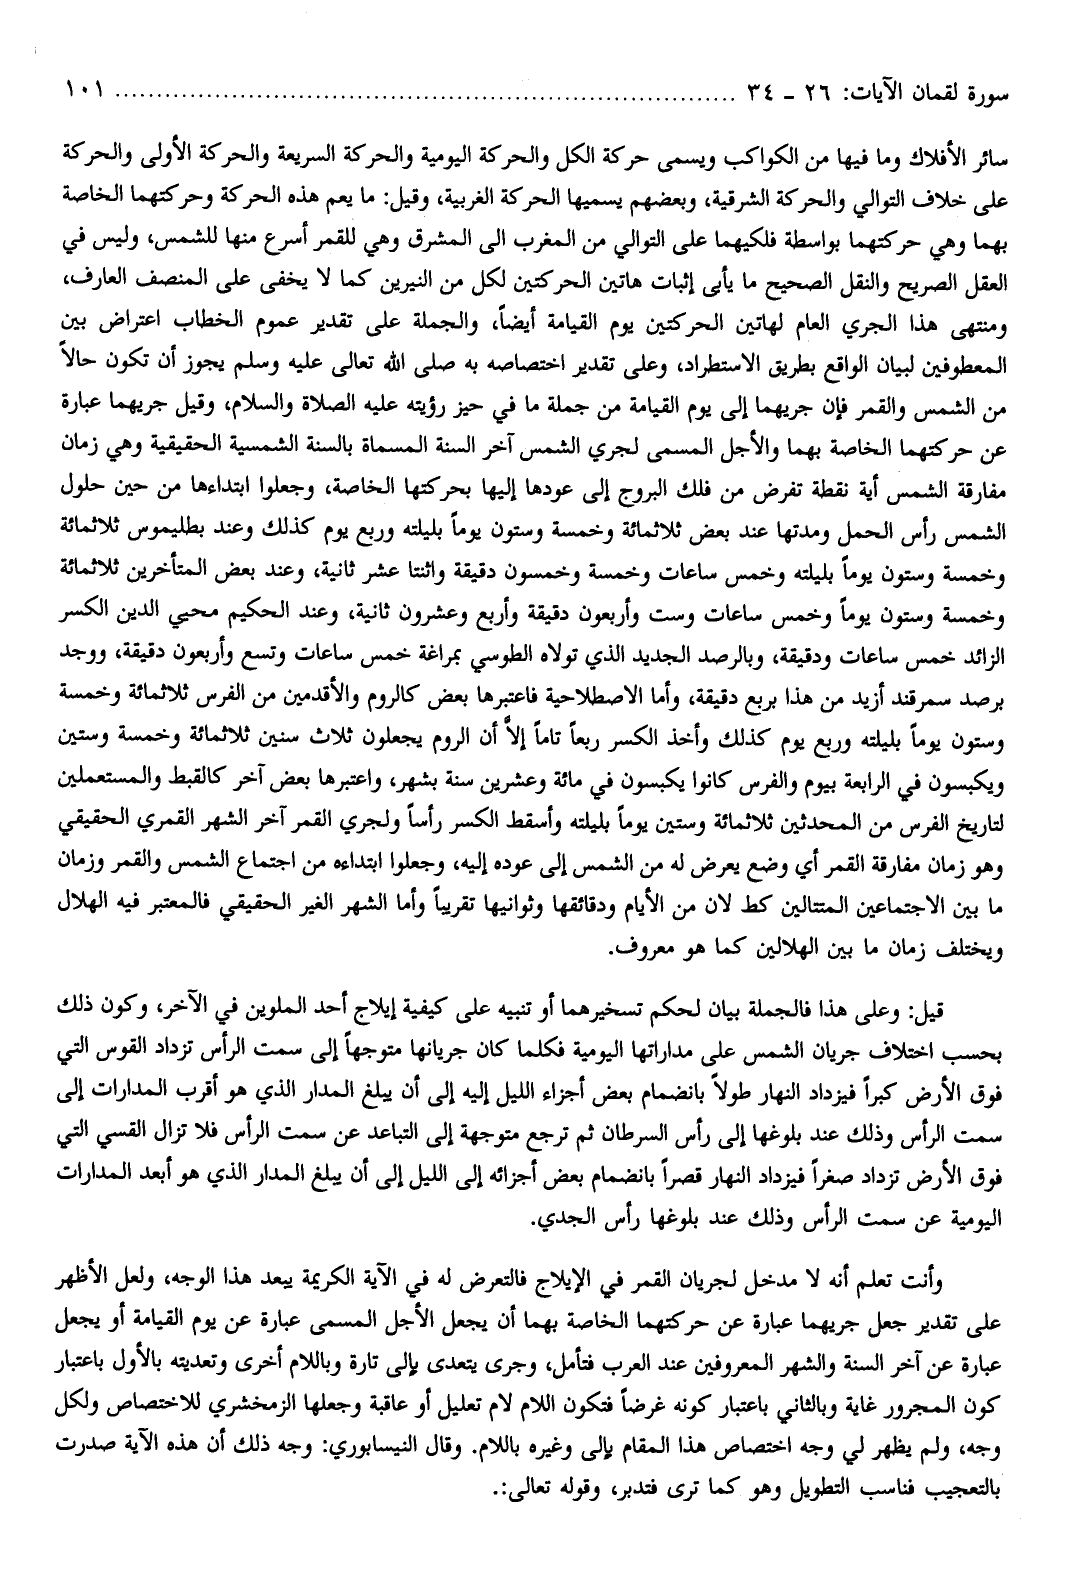 سورة لقمان الآيات: ٢٦ ـ ٣٤ ........................................................................... ١٠١
سائر الأفلاك وما فيها من الكواكب ويسمى حركة الكل والحركة اليومية والحركة السريعة والحركة الأولى والحركة
على خلاف التوالي والحركة الشرقية، وبعضهم يسميها الحركة الغربية، وقيل: ما يعم هذه الحركة وحركتهما الخاصة
بهما وهي حركتهما بواسطة فلكيهما على التوالي من المغرب الى المشرق وهي للقمر أسرع منها للشمس، وليس في
العقل الصريح والنقل الصحيح ما يأبى إثبات هاتين الحركتين لكل من النيرين كما لا يخفى على المنصف العارف،
ومنتهى هذا الجري العام لهاتين الحركتين يوم القيامة أيضاً، والجملة على تقدير عموم الخطاب اعتراض بين
المعطوفين لبيان الواقع بطريق الاستطراد، وعلى تقدير اختصاصه به صلى الله تعالى عليه وسلم يجوز أن تكون حالاً
من الشمس والقمر فإن جريهما إلى يوم القيامة من جملة ما في حيز رؤيته عليه الصلاة والسلام، وقيل جريهما عبارة
عن حركتهما الخاصة بهما والأجل المسمى لجري الشمس آخر السنة المسماة بالسنة الشمسية الحقيقية وهي زمان
مفارقة الشمس أية نقطة تفرض من فلك البروج إلى عودها إليها بحركتها الخاصة، وجعلوا ابتداءها من حين حلول
الشمس رأس الحمل ومدتها عند بعض ثلاثمائة وخمسة وستون يوماً بليلته وربع يوم كذلك وعند بطليموس ثلاثمائة
وخمسة وستون يوماً بليلته وخمس ساعات وخمسة وخمسون دقيقة واثنتا عشر ثانية، وعند بعض المتأخرين ثلاثمائة
وخمسة وستون يوماً وخمس ساعات وست وأربعون دقيقة وأربع وعشرون ثانية، وعند الحكيم محيي الدين الكسر
الزائد خمس ساعات ودقيقة، وبالرصد الجديد الذي تولاه الطوسي بمراغة خمس ساعات وتسع وأربعون دقيقة، ووجد
برصد سمرقند أزيد من هذا بربع دقيقة، وأما الاصطلاحية فاعتبرها بعض كالروم والأقدمين من الفرس ثلاثمائة وخمسة
وستون يوماً بليلته وربع يوم كذلك وأخذ الكسر ربعاً تاماً إلاَّ أن الروم يجعلون ثلاث سنين ثلاثمائة وخمسة وستين
ويكبسون في الرابعة بيوم والفرس كانوا يكبسون في مائة وعشرين سنة بشهر، واعتبرها بعض آخر كالقبط والمستعملين
لتاريخ الفرس من المحدثين ثلاثمائة وستين يوماً بليلته وأسقط الكسر رأساً ولجري القمر آخر الشهر القمري الحقيقي
وهو زمان مفارقة القمر أي وضع يعرض له من الشمس إلى عوده إليه، وجعلوا ابتداءه من اجتماع الشمس والقمر وزمان
ما بين الاجتماعين المتتالين كط لان من الأيام ودقائقها وثوانيها تقريباً وأما الشهر الغير الحقيقي فالمعتبر فيه الهلال
ويختلف زمان ما بين الهلالين كما هو معروف.
قيل: وعلى هذا فالجملة بيان لحكم تسخيرهما أو تنبيه على كيفية إيلاج أحد الملوين في الآخر، وكون ذلك
بحسب اختلاف جريان الشمس على مداراتها اليومية فكلما كان جريانها متوجهاً إلى سمت الرأس تزداد القوس التي
فوق الأرض كبراً فيزداد النهار طولاً بانضمام بعض أجزاء الليل إليه إلى أن يبلغ المدار الذي هو أقرب المدارات إلى
سمت الرأس وذلك عند بلوغها إلى رأس السرطان ثم ترجع متوجهة إلى التباعد عن سمت الرأس فلا تزال القسي التي
فوق الأرض تزداد صغراً فيزداد النهار قصراً بانضمام بعض أجزائه إلى الليل إلى أن يبلغ المدار الذي هو أبعد المدارات
اليومية عن سمت الرأس وذلك عند بلوغها رأس الجدي.
وأنت تعلم أنه لا مدخل لجريان القمر في الإيلاج فالتعرض له في الآية الكريمة يبعد هذا الوجه، ولعل الأظهر
على تقدير جعل جريهما عبارة عن حركتهما الخاصة بهما أن يجعل الأجل المسمى عبارة عن يوم القيامة أو يجعل
عبارة عن آخر السنة والشهر المعروفين عند العرب فتأمل، وجرى يتعدى بإلى تارة وباللام أخرى وتعديته بالأول باعتبار
كون المجرور غاية وبالثاني باعتبار كونه غرضاً فتكون اللام لام تعليل أو عاقبة وجعلها الزمخشري للاختصاص ولكل
وجه، ولم يظهر لي وجه اختصاص هذا المقام بإلى وغيره باللام. وقال النيسابوري: وجه ذلك أن هذه الآية صدرت
بالتعجيب فناسب التطويل وهو كما ترى فتدبر، وقوله تعالى:.